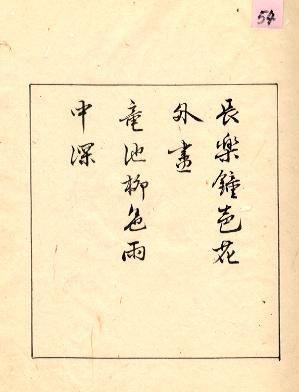 54
長樂鐘声花
外盡
竜池柳色雨
中深